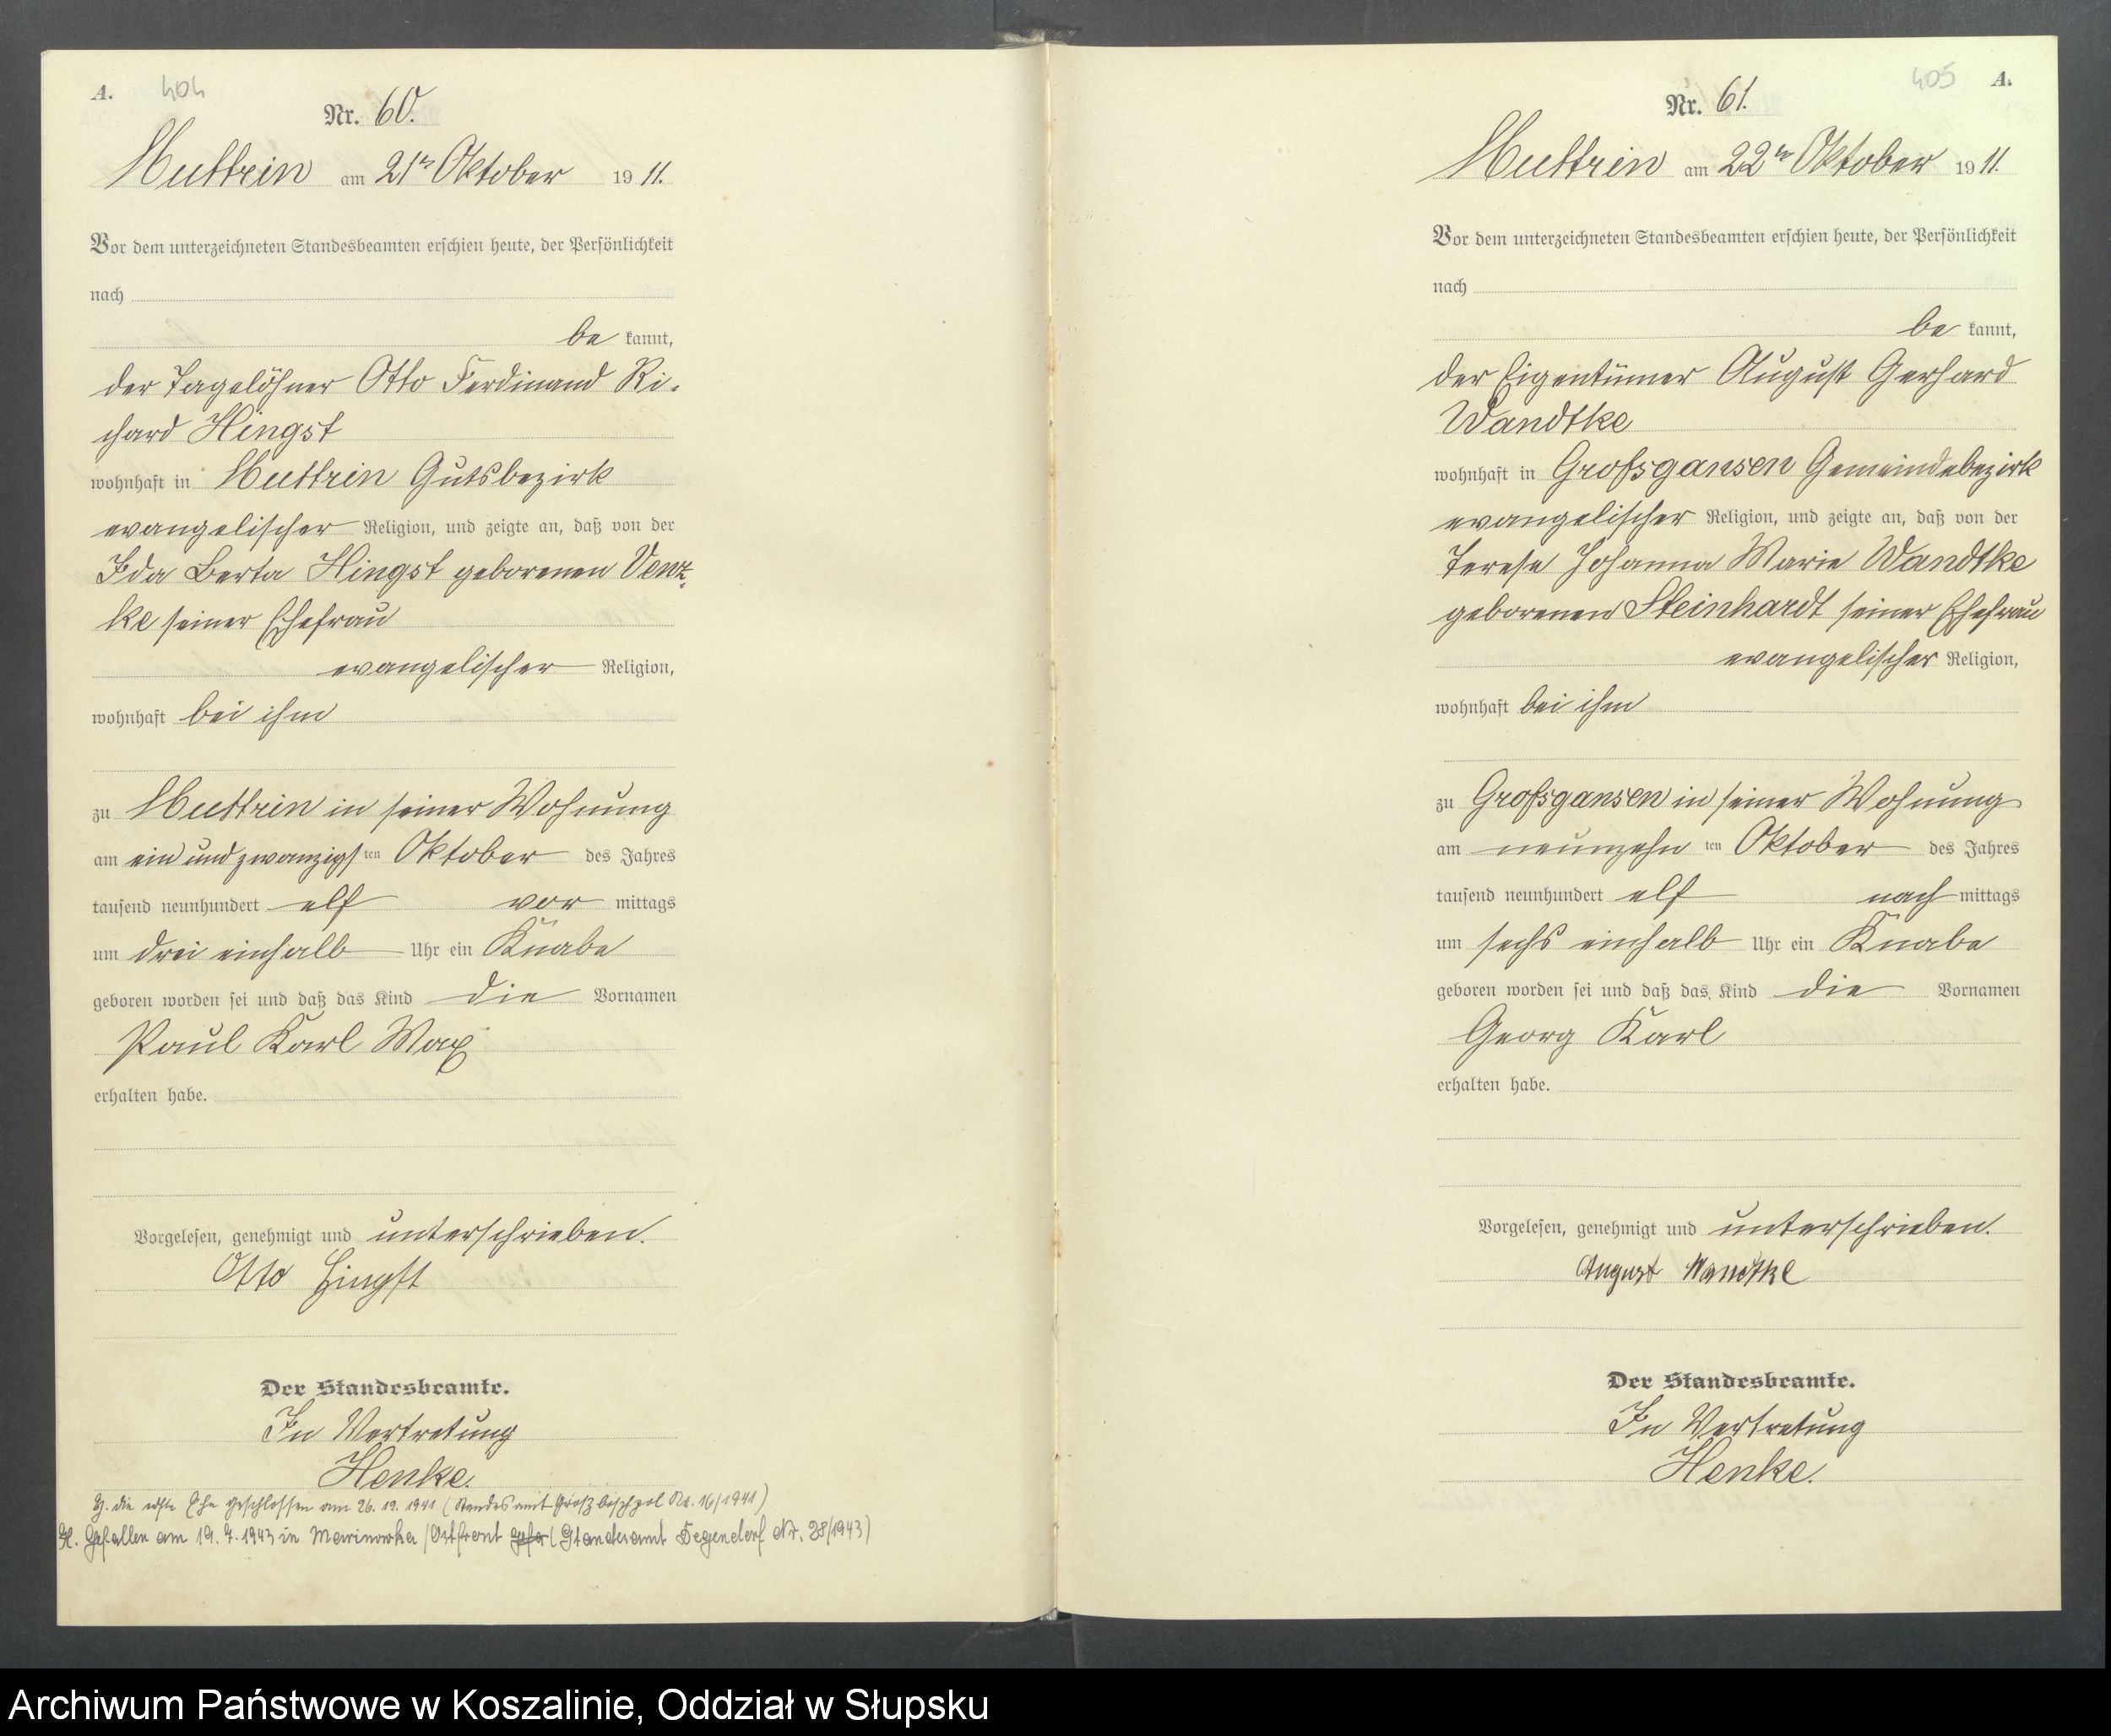 A. 404
Nr. 60.
Muttrin am 21ten Oktober 1911.
Vor dem unterzeichneten Standesbeamten erschien heute, der Persönlichkeit
nach
be kannt,
der Tagelöhner Otto Ferdinand Ri-
chard Hingst
wohnhaft in Muttrin Gutsbezirk
evangelischer Religion, und zeigte an, daß von der
Ida Berta Hingst geborenen Venz-
ke seiner Ehefrau
evangelischer Religion,
wohnhaft bei ihm
zu Muttrin in seiner Wohnung
am ein und zwanzigs ten Oktober des Jahres
tausend neunhundert elf vor mittags
um drei einhalb Uhr ein Knabe
geboren worden sei und daß das Kind die Vornamen
Paul Karl Max
erhalten habe.
Vorgelesen, genehmigt und unterschrieben.
Otto Hingst
Der Standesbeamte.
In Vertretung
Henke.
die erste Ehe geschlossen am 26. 1941 (Standesamt Nr. 16/1941)
Gefallen am 19. 7. 1943 in Marinowka /Ostfront (Standesamt Degendorf Nr. 28/1943)
405 A.
Nr. 61.
Muttrin am 22ten Oktober 1911.
Vor dem unterzeichneten Standesbeamten erschien heute, der Persönlichkeit
nach
be kannt,
der Eigentümer August Gerhard
Wandtke
wohnhaft in Großgansen Gemeindebezirk
evangelischer Religion, und zeigte an, daß von der
Terese Johanna Marie Wandtke
geborenen Steinhardt seiner Ehefrau
evangelischer Religion,
wohnhaft bei ihm
zu Großgansen in seiner Wohnung
am neunzehn ten Oktober des Jahres
tausend neunhundert elf nach mittags
um sechs einhalb Uhr ein Knabe
geboren worden sei und daß das Kind die Vornamen
Georg Karl
erhalten habe.
Vorgelesen, genehmigt und unterschrieben.
August Wandtke
Der Standesbeamte.
In Vertretung
Henke.
Archiwum Państwowe w Koszalinie, Oddział w Słupsku